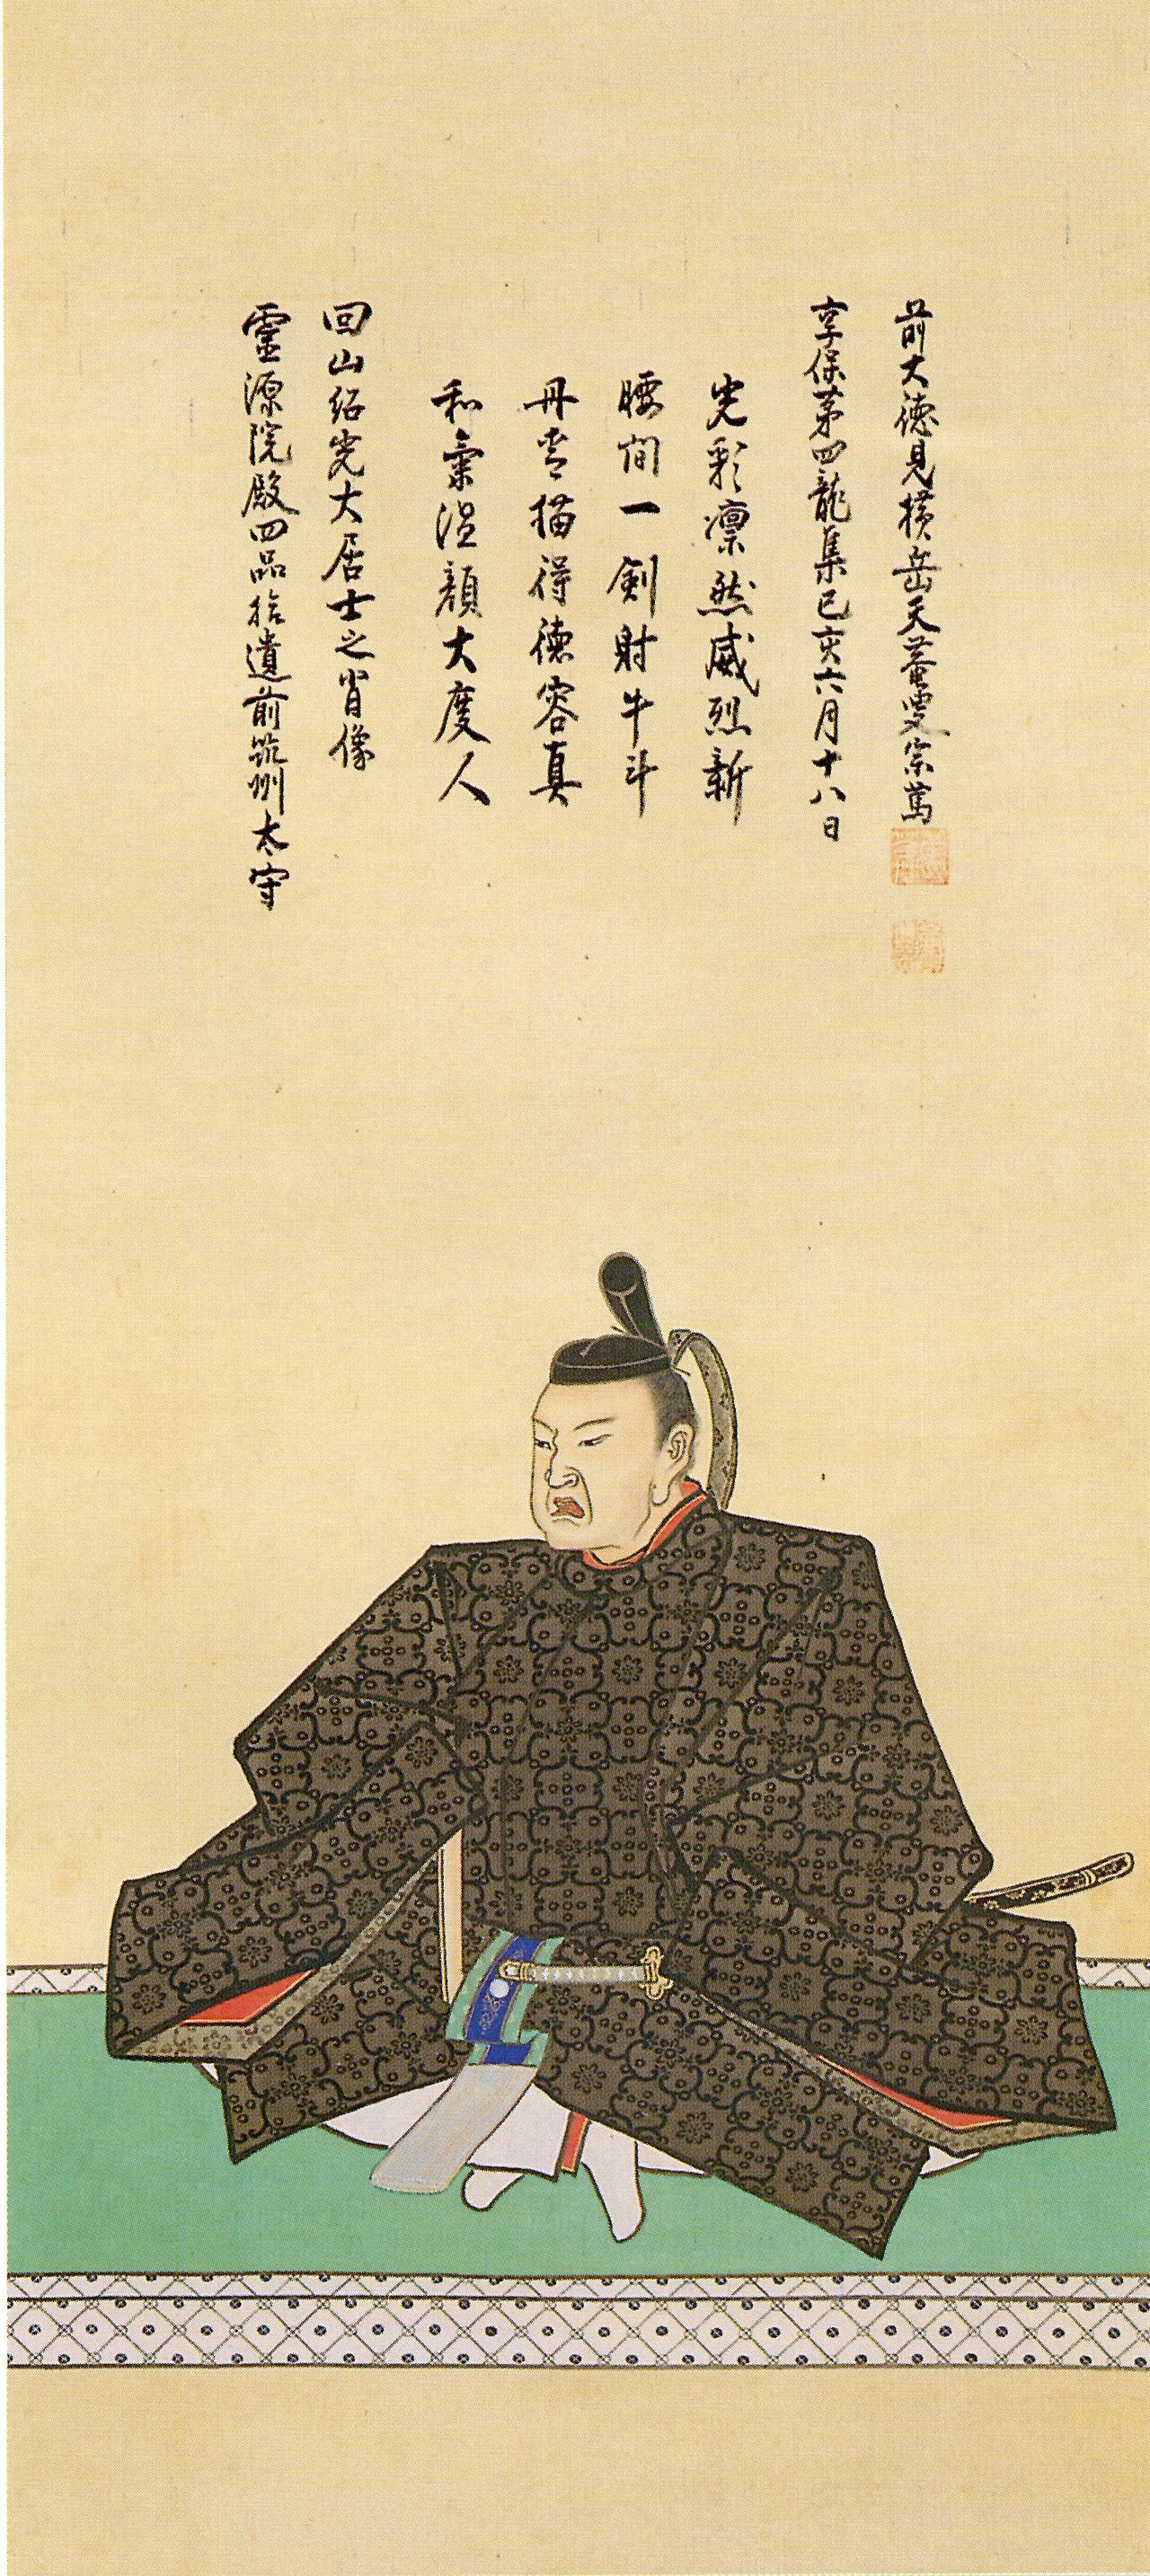 靈源院殿四品拾遺前筑州太守
回山紹光大居士之肖像
和氣温顔大度人
丹青描得徳容真
腰間一剣射牛斗
光彩凛然威烈新
享保第四龍集己亥六月十八日
前大徳見横岳天菴叟宗